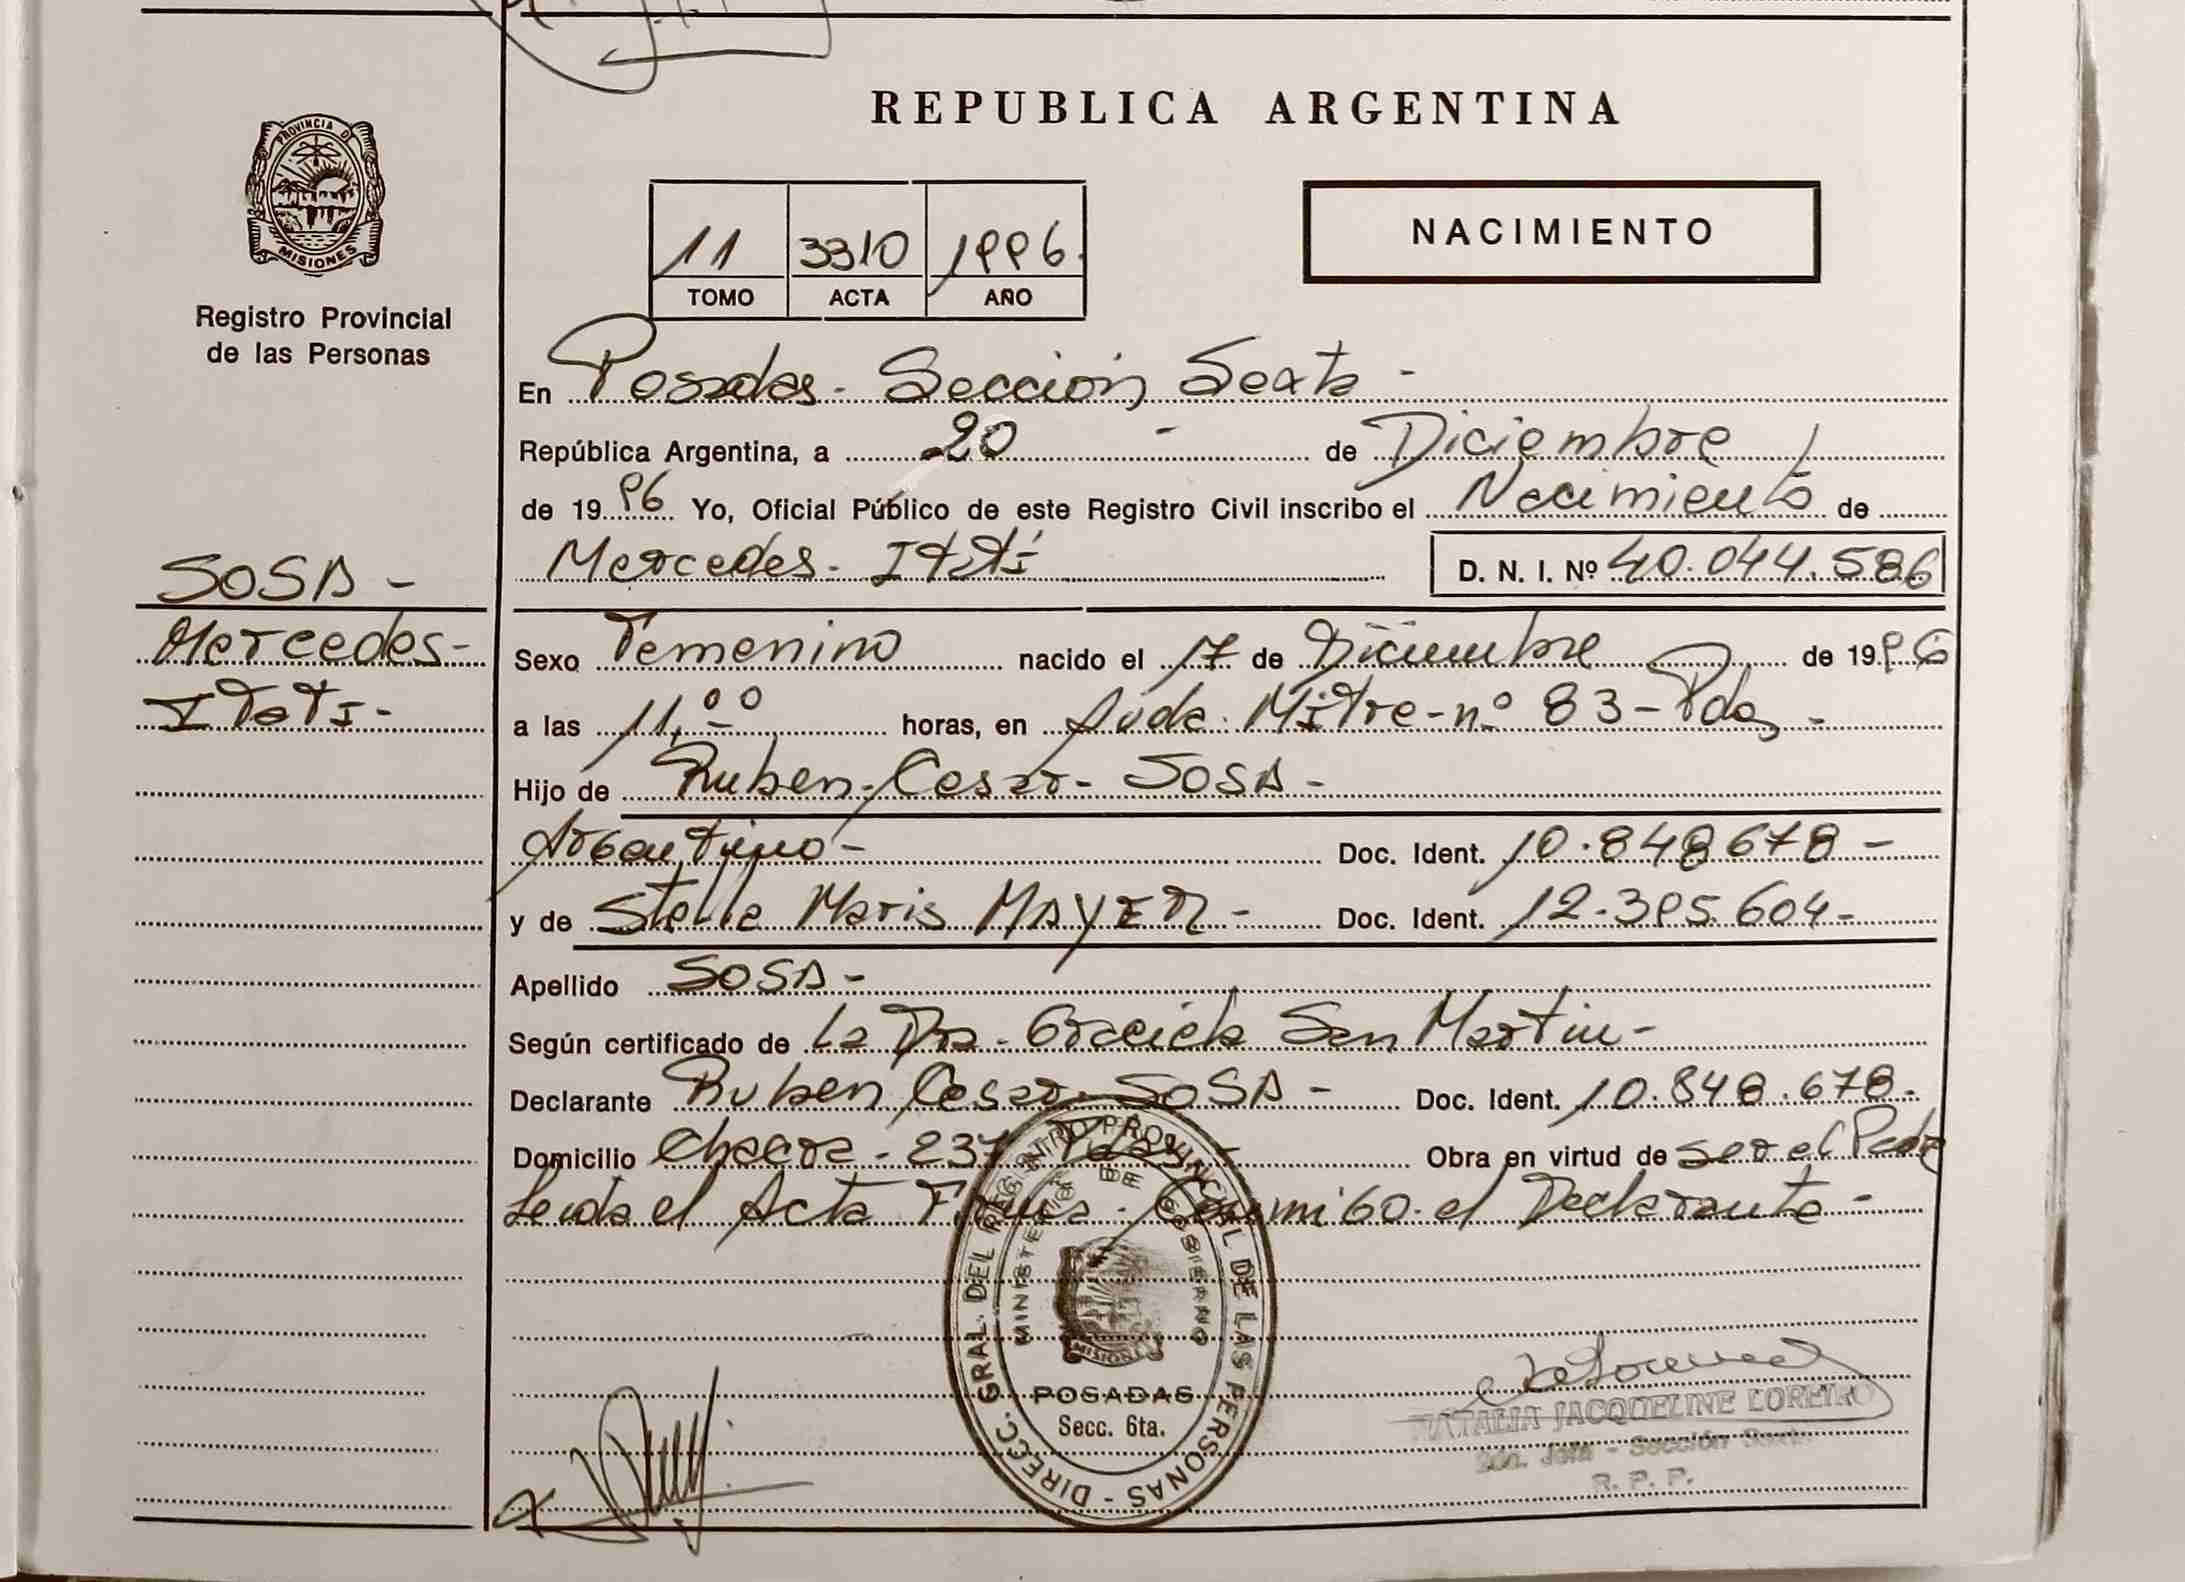 REPUBLICA ARGENTINA
PROVINCIA D
MISIONES
Registro Provincial
de las Personas
11 3310 1996
TOMO ACTA AÑO
NACIMIENTO
En Posadas - Sección Sexta -
República Argentina, a 20 - de Diciembre
de 1996 Yo, Oficial Público de este Registro Civil inscribo el Nacimiento de
Mercedes - Itatí D. N. I. Nº 40.044.586
SOSA -
Mercedes -
Itatí -
Sexo Femenino nacido el 17 de Diciembre de 1996
a las 11,00 horas, en Avda. Mitre - nº 83 - Pdas -
Hijo de Ruben Cesar - SOSA -
Argentino - Doc. Ident. 10.848678 -
y de Stella Maris MAYER - Doc. Ident. 12.395.604 -
Apellido SOSA -
Según certificado de La Dra. Graciela San Martin -
Declarante Ruben Cesar SOSA - Doc. Ident. 10.848.678.
Domicilio Chacra - 237 Pdas - Obra en virtud de ser el Padre
Leida el Acta Firma - Conmigo el Declarante -
DIRECC. GRAL. DEL REGISTRO PROVINCIAL DE LAS PERSONAS -
MINISTERIO DE GOBIERNO
MISIONES
POSADAS
Secc. 6ta.
NATALIA JACQUELINE LOREIRO
2da. Jefa - Sección Sexta
R. P. P.